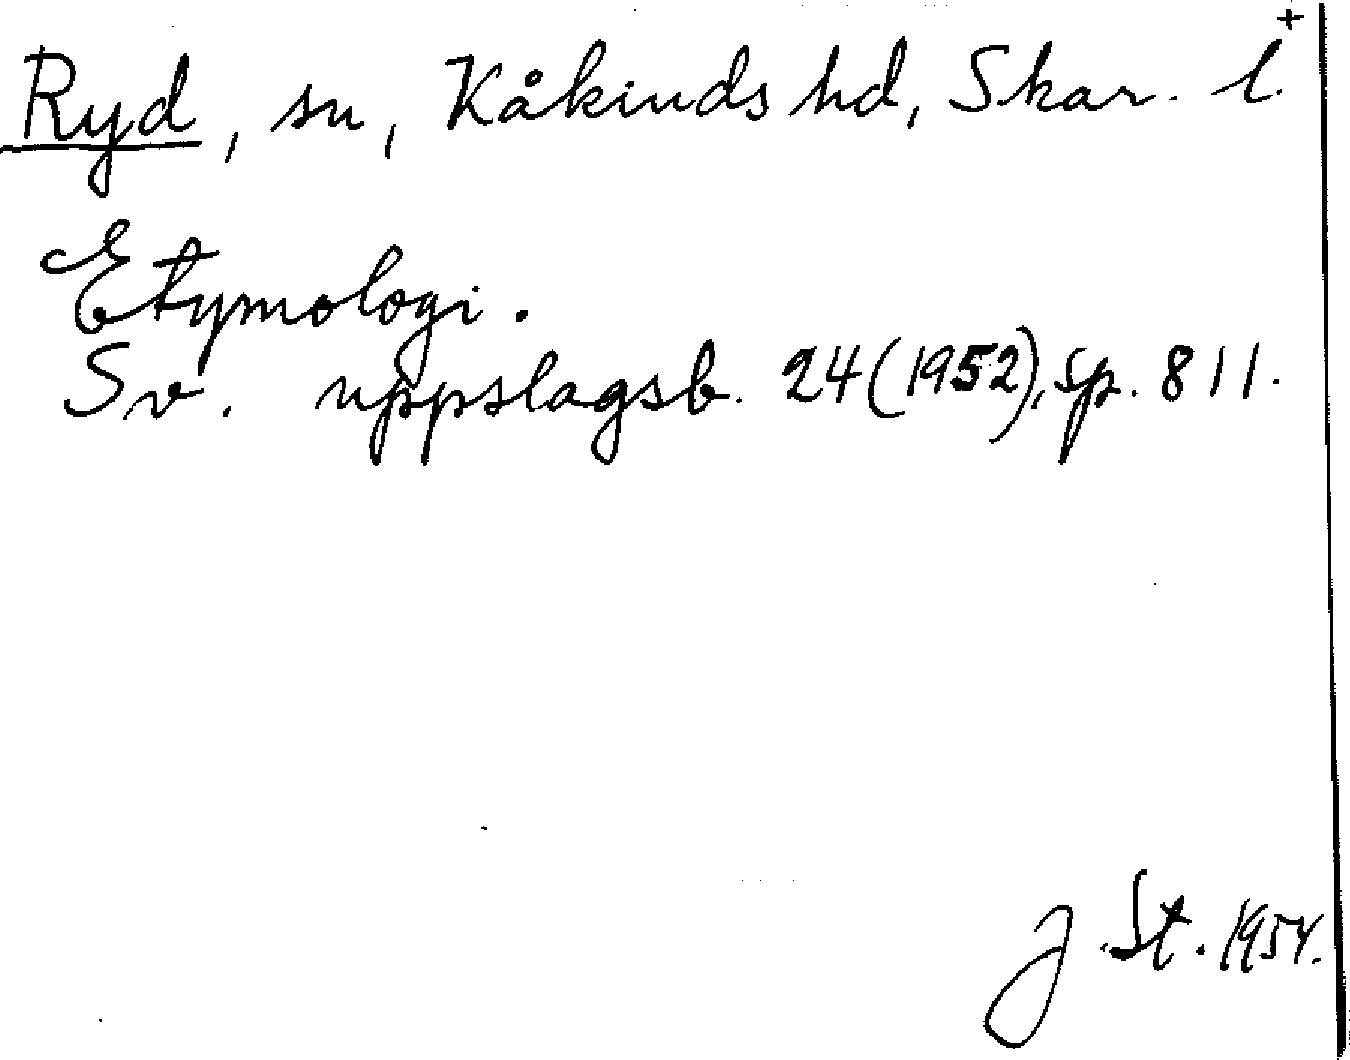 Ryd, sn, Kåkinds hd, Skar. l. +
Etymologi.
Sv. uppslagsb. 24 (1952), sp. 811.
J St. 1954.